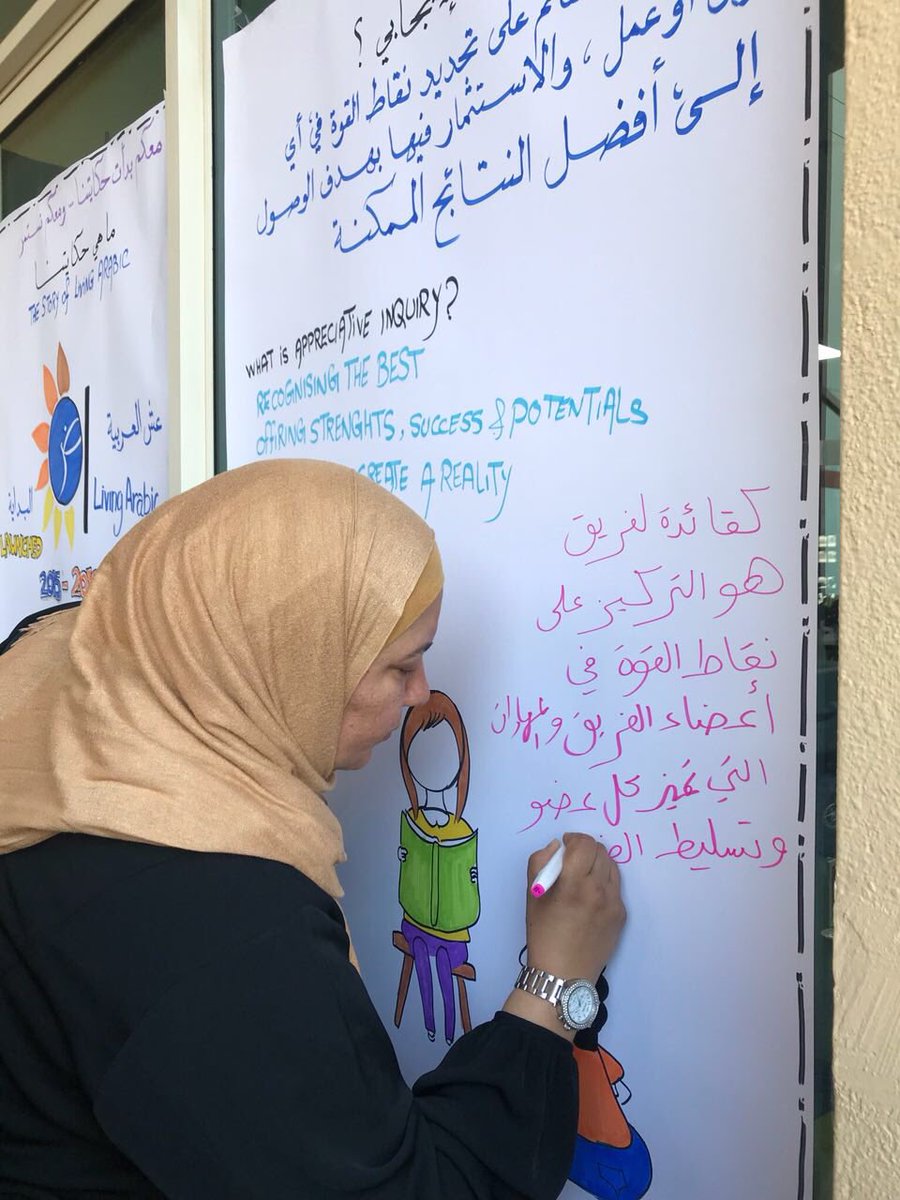 معكم بدأت حكايتنا .. ومعكم تستمر
ما هي حكايتنا
THE STORY OF LIVING ARABIC
ض
عش العربية
Living Arabic
البداية
LAUNCHED
2015 -
على تحديد نقاط القوة في أي
أو عمل، والاستثمار فيها بهدف الوصول
إلى أفضل النتائج الممكنة
WHAT IS APPRECIATIVE INQUIRY?
RECOGNISING THE BEST
AFFIRING STRENGHTS, SUCCESS & POTENTIALS
CREATE A REALITY
كقائدة لفريق
هو التركيز على
نقاط القوة في
أعضاء الفريق
التي تميز كل عضو
وتسليط